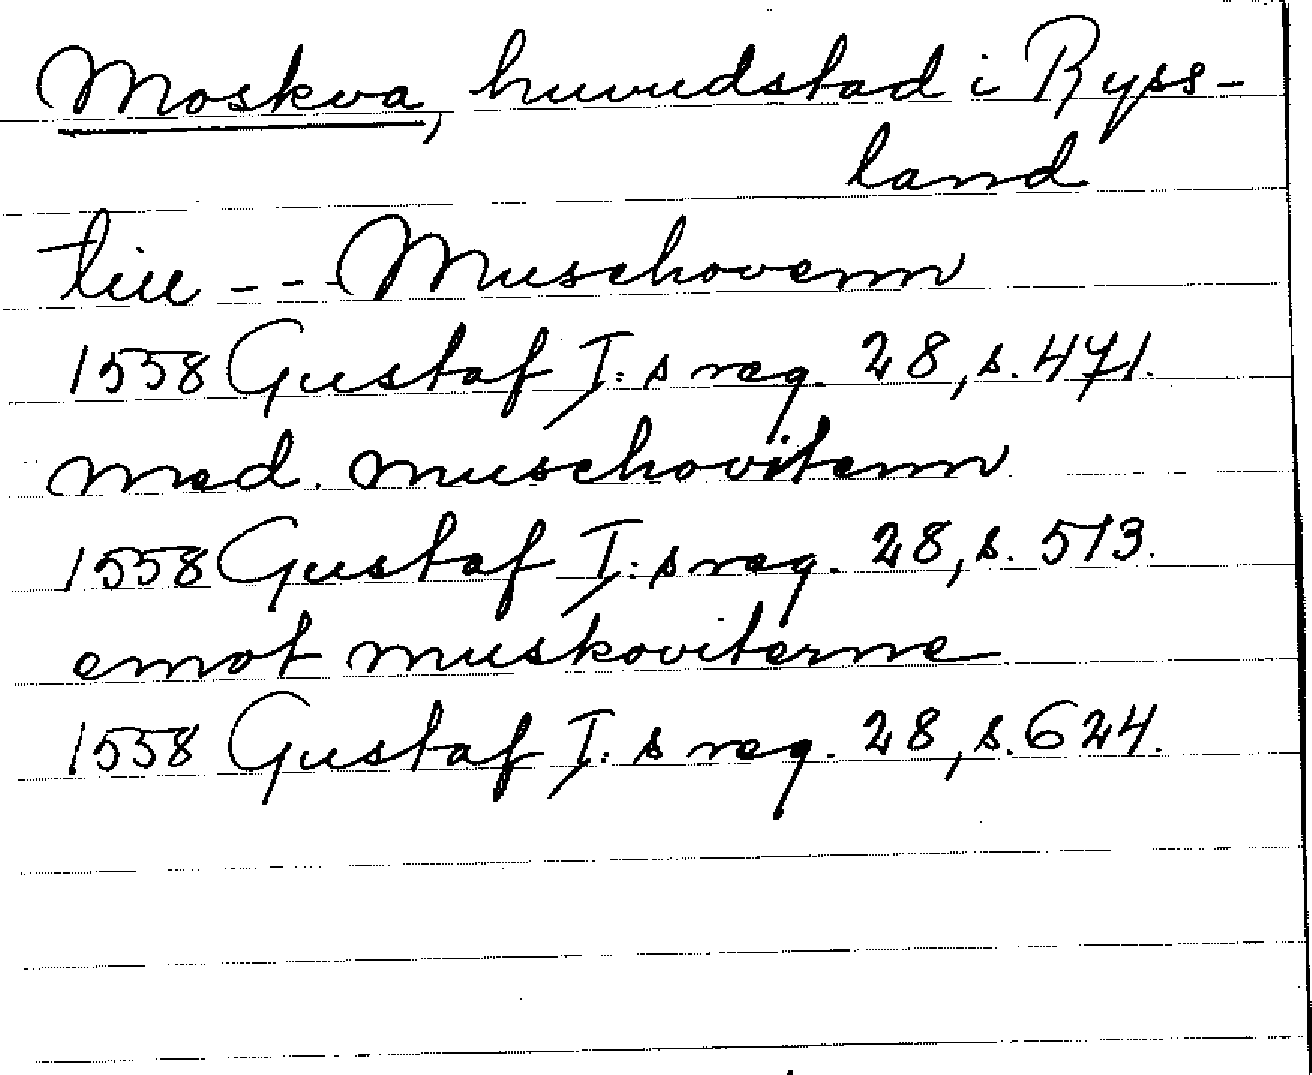 Moskva, huvudstad i Ryss-
land
till - - - Muschovenn
1558 Gustaf I:s reg. 28, s. 471.
med. muschovitenn
1558 Gustaf I:s reg. 28, s. 513.
emot muskoviterne
1558 Gustaf I:s reg. 28, s. 624.